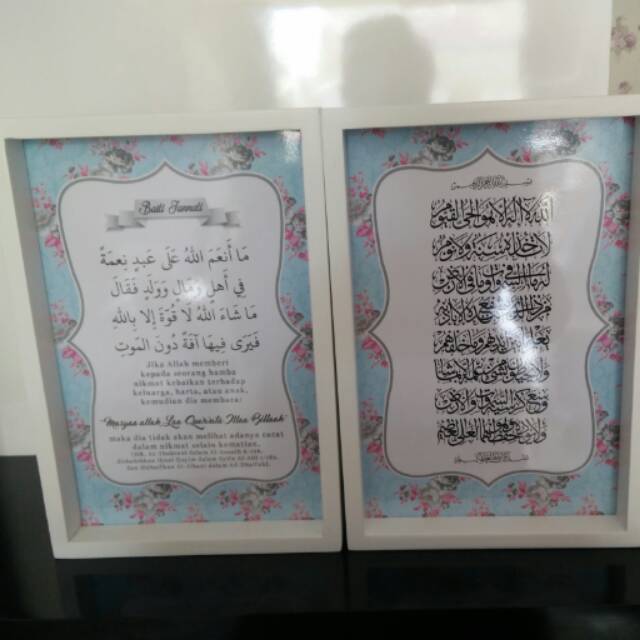 Baiti Jannati
مَا أَنعَمَ اللهُ عَلَى عَبدٍ نِعمَةً
فِي أَهلٍ وَمَالٍ وَوَلَدٍ فَقَالَ
مَا شَاءَ اللهُ لَا قُوَةَ إِلا بِاللهِ
فَيَرَى فِيهَا آفَةً دُونَ المَوتِ
Jika Allah memberi
kepada seorang hamba
nikmat kebaikan terhadap
keluarga, harta, atau anak,
kemudian dia membaca:
"Masyaa allah Laa Quwwata Illaa Billaah"
maka dia tidak akan melihat adanya cacat
dalam nikmat selain kematian.
الله لا إله إلا هو الحي القيوم
لا تأخذه سنة ولا نوم
له ما في السموات وما في الأرض
من ذا الذي يشفع عنده إلا بإذنه
يعلم ما بين أيديهم وما خلفهم
ولا يحيطون بشيء من علمه إلا بما شاء
وسع كرسيه السموات والأرض
ولا يئوده حفظهما وهو العلي العظيم